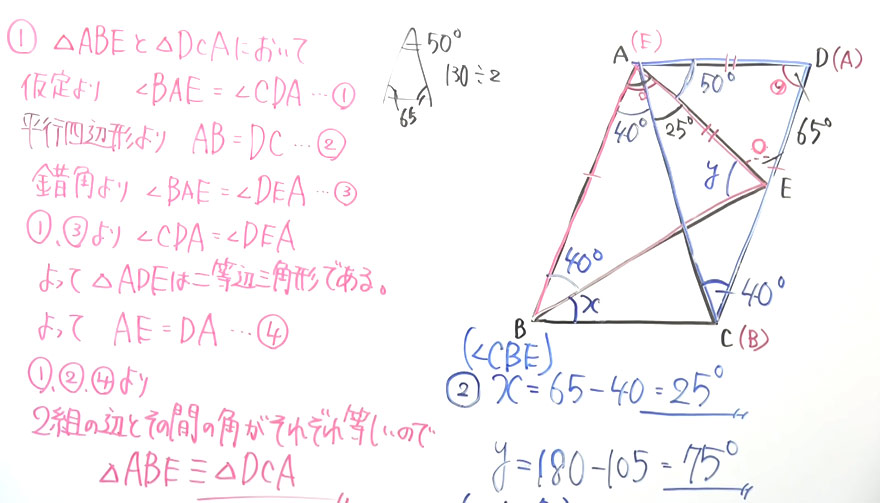 ① △ABEと△DCAにおいて
仮定より ∠BAE=∠CDA…①
平行四辺形より AB=DC…②
錯角より ∠BAE=∠DEA…③
①、③より ∠CDA=∠DEA
よって△ADEは二等辺三角形である。
よって AE=DA…④
①、②、④より
2組の辺とその間の角がそれぞれ等しいので
△ABE≡△DCA
50°
130÷2
65
A(E)
D(A)
50°
40°
25°
65°
y
E
40°
x
40°
B
C(B)
(∠CBE)
② x=65-40=25°
y=180-105=75°